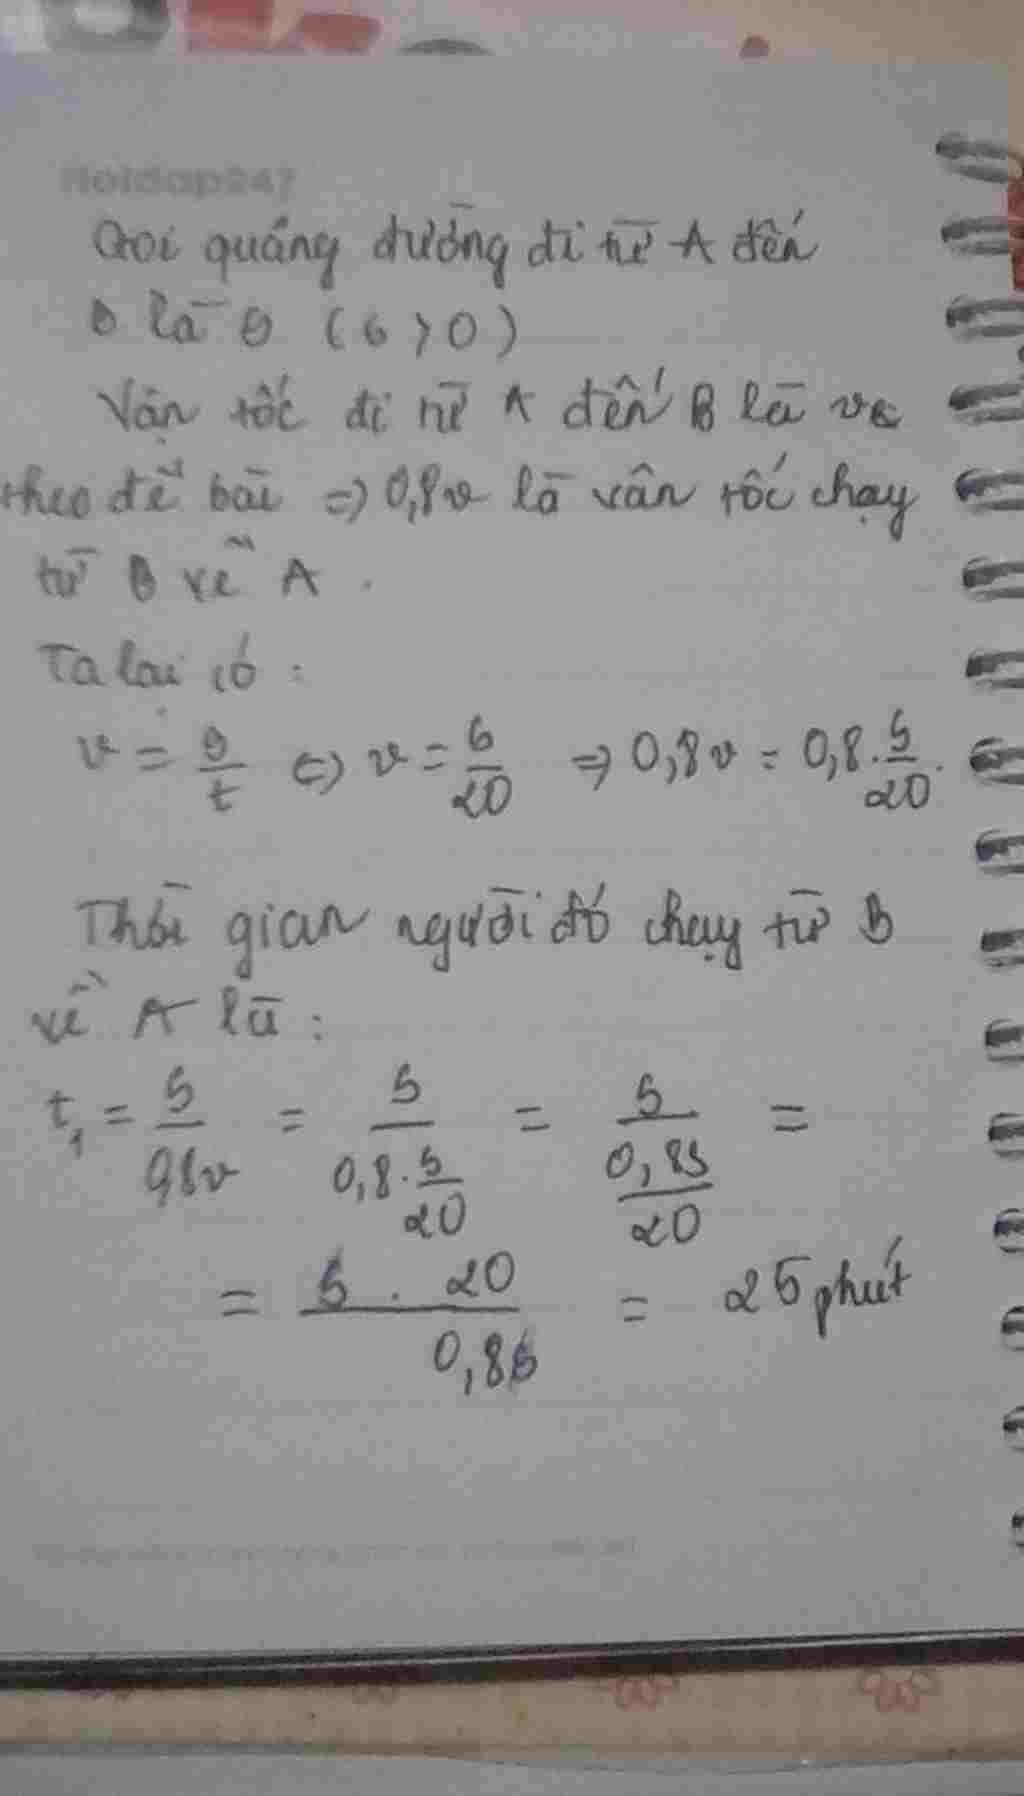 Hoidap247
Gọi quãng đường đi từ A đến
B là S (S > 0)
Vận tốc đi từ A đến B là v
theo đề bài => 0,8v là vân tốc chạy
từ B về A.
Ta lại có:
v = S/t <=> v = S/20 => 0,8v = 0,8.S/20.
Thời gian người đó chạy từ B
về A là:
t₁ = S/0,8v = S/(0,8.S/20) = S/(0,8S/20) =
= S . 20/0,8S = 25 phút